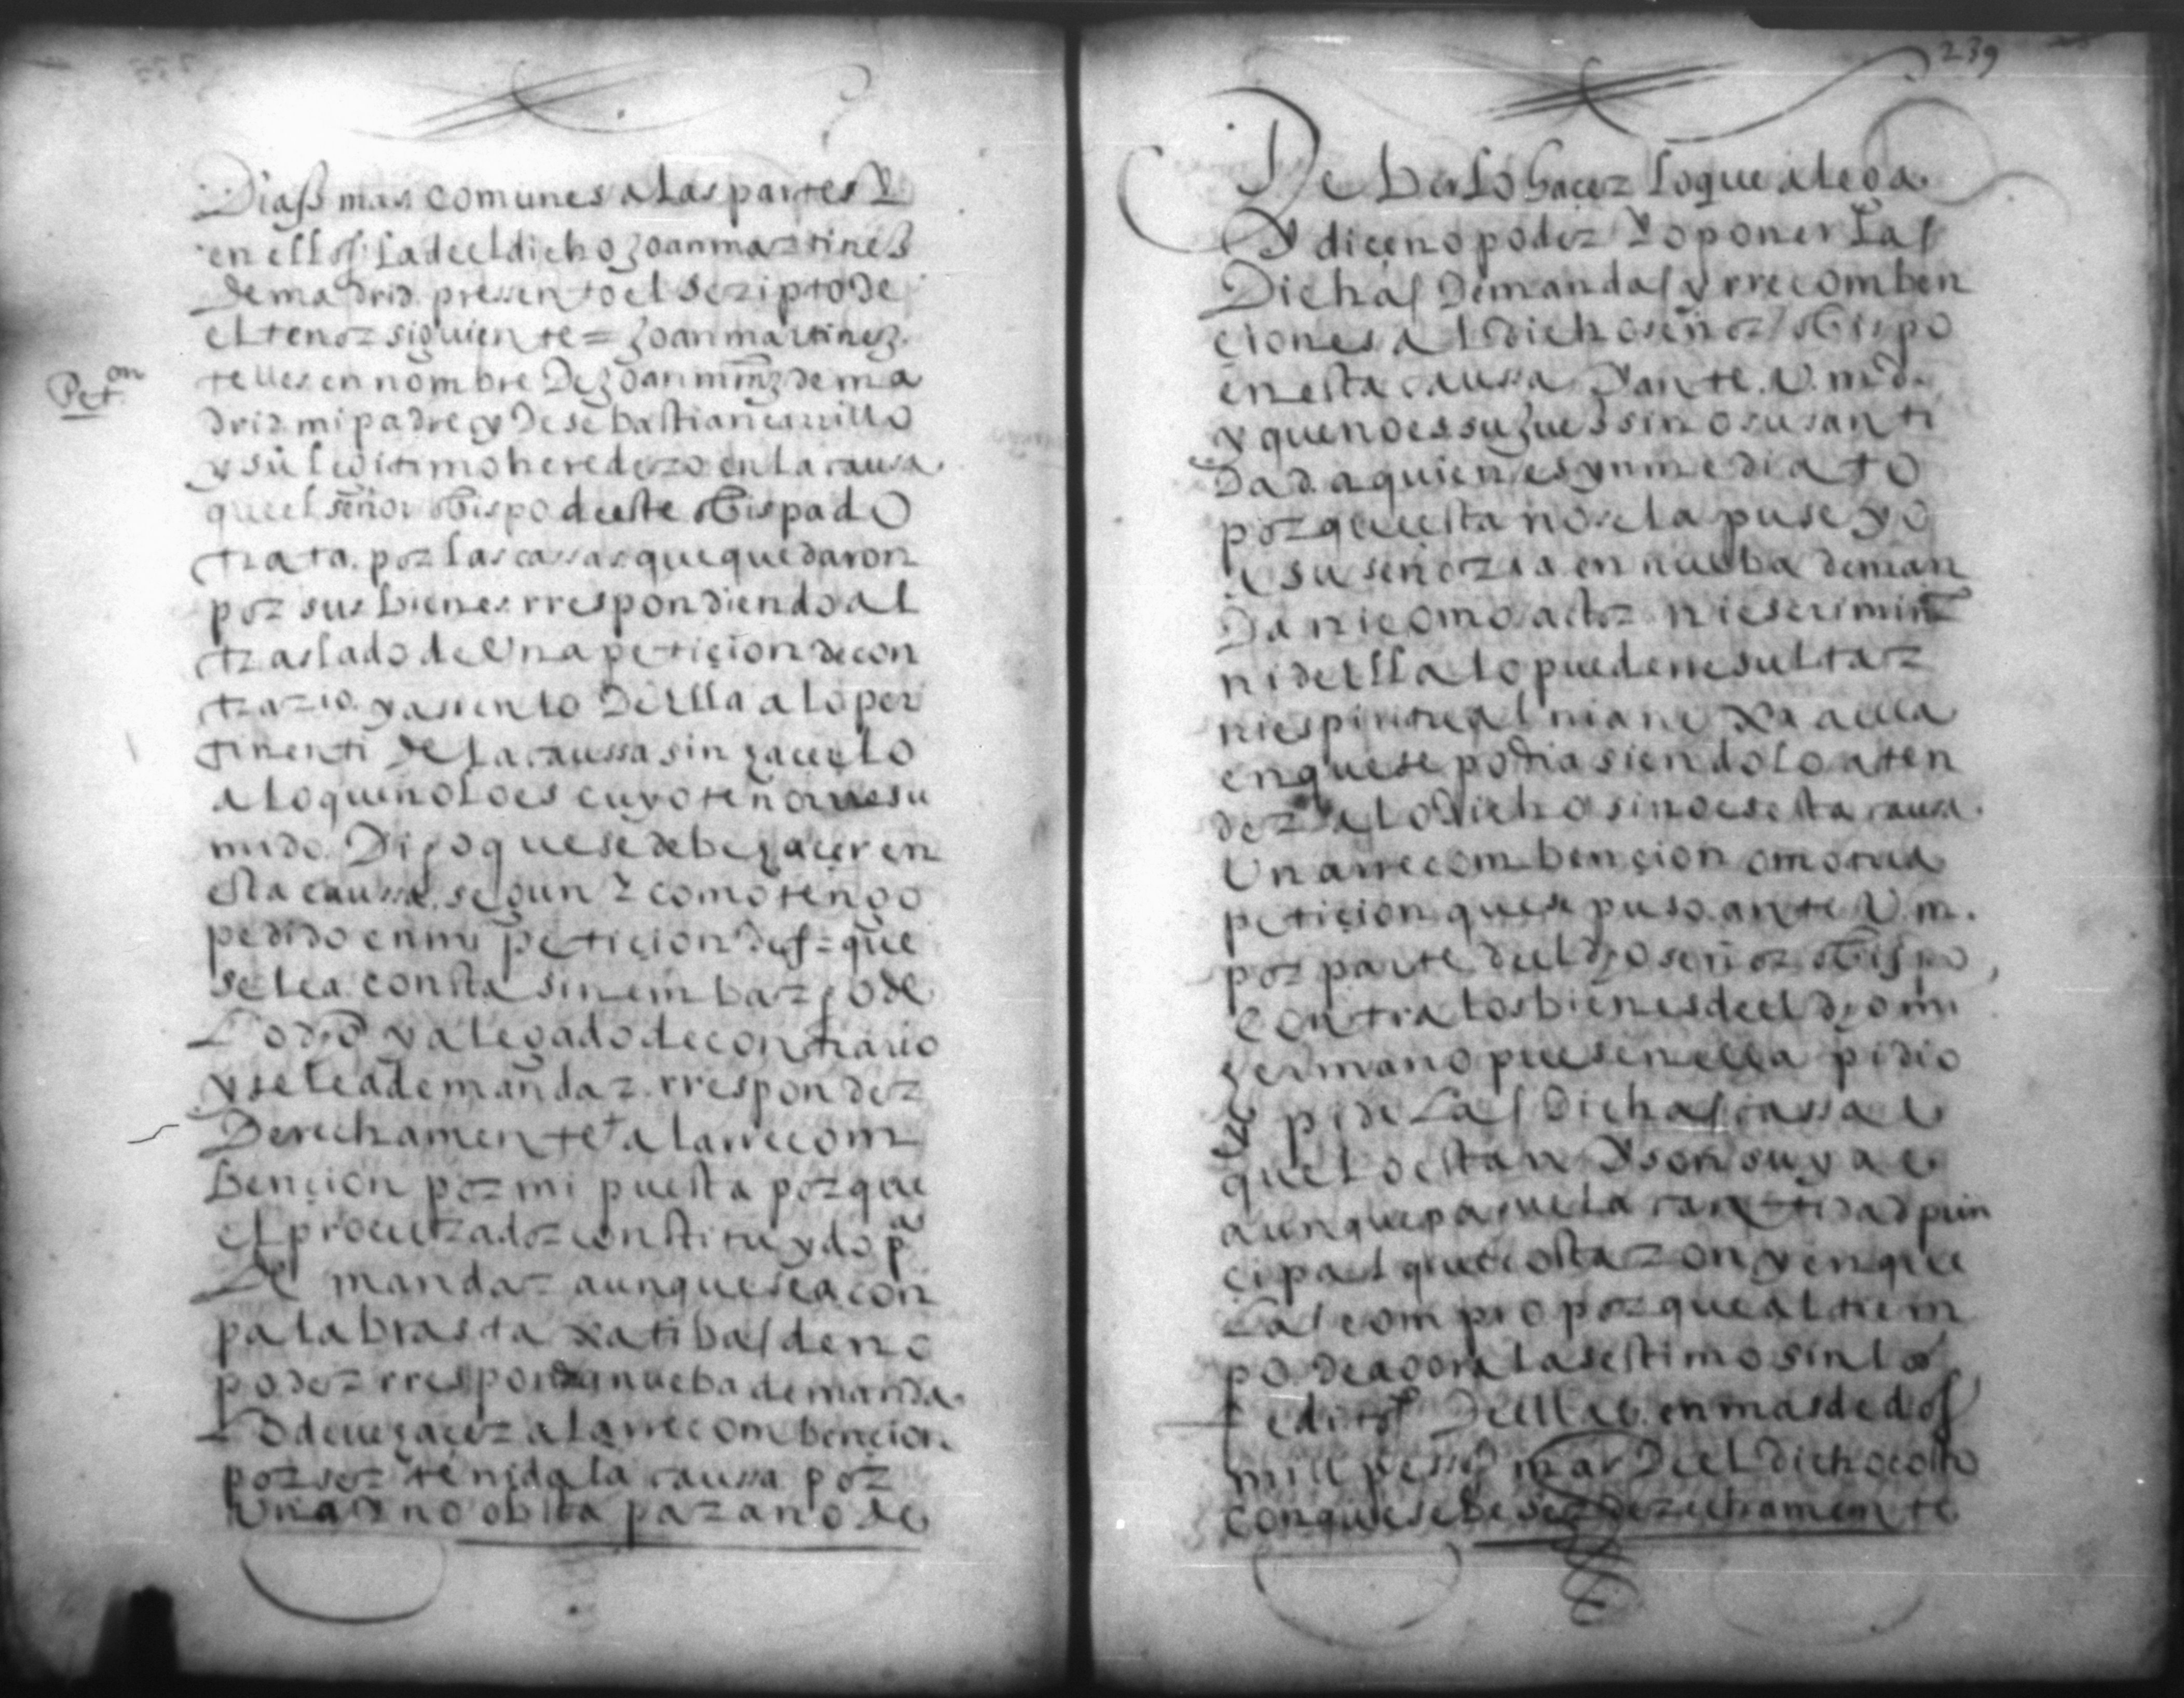 Diass mas comunes a las partes Y
en ellos la de el dicho Joan martines
de madrid presento el scripto de
el tenor siguiente = Joan martinez
Pet.on
telles en nombre de Joan mrnz de ma
drid mi padre y de sebastian carrillo
y su legitimo heredero en la causa
que el señor obispo de este obispado
trata por las cassas que quedaron
por sus bienes rrespondiendo al
traslado de Una petiçion de con
trario y assiento de ella a lo per
tinenti de la caussa sin haçerlo
a lo que no lo es cuyo tenor resu
mido Digo que se debe haçer en
esta caussa segun Y como tengo
pedido en mi petiçion de f= que
se lea consta sin embargo de
Lo dho y alegado de contrario
y se lea demandar rresponder
Derechamente a la rrecom
bençion por mi puesta porque
el procurador constituydo pa
De mandar aunque sea con
palabras taxatibas de no
poder rresponder a nueba demanda
Lo deve haçer a la rrecombençion
por ser tenida la caussa por
Una Y no obsta para no de
239
De berlo hacer lo que alega
Y diçe no poder Yo poner Las
Dichas Demandas y rrecomben
çiones al dicho señor obispo
en esta caussa Y ante V. md.
y que no es su Juez sino su santi
Dad a quien es ynmediato
porque esta no se la puse yo
a su señoria en nueba deman
Da ni como actor ni es crimin
ni de ella lo puede rresultar
ni espiritual ni anexa a ella
en que se podia siendolo aten
der a lo dicho sino es esta causa
Una rrecombençion
petiçion que se puso ante V. m.
por parte de el dho señor obispo
contra los bienes de el dho mi
hermano pues en ella pidio
y pide Las Dichas cassas
que lo estan Y son suyas
aunque pague la cantidad prin
cipal que costaron y en que
Las compro porque al tiem
po de agora las estimo sin los
reditos de ellas en mas de dos
mill pessos mas De el dicho costo
con que se debe ser derechamente